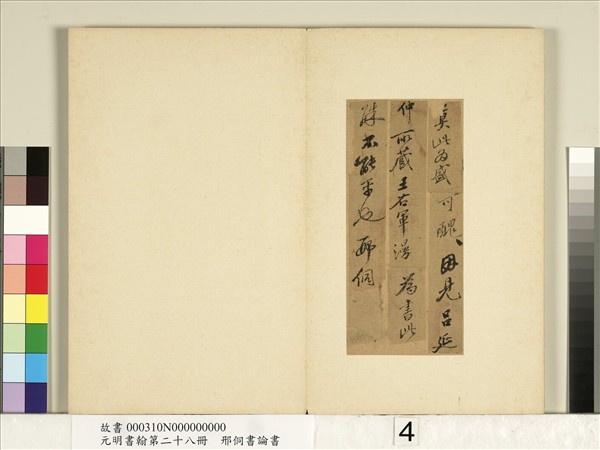 莫此為盛可醜因見呂延
仲所藏王右軍漫為書此
殊不能平也邢侗
故書 000310N000000000
元明書翰第二十八冊　邢侗書論書
4